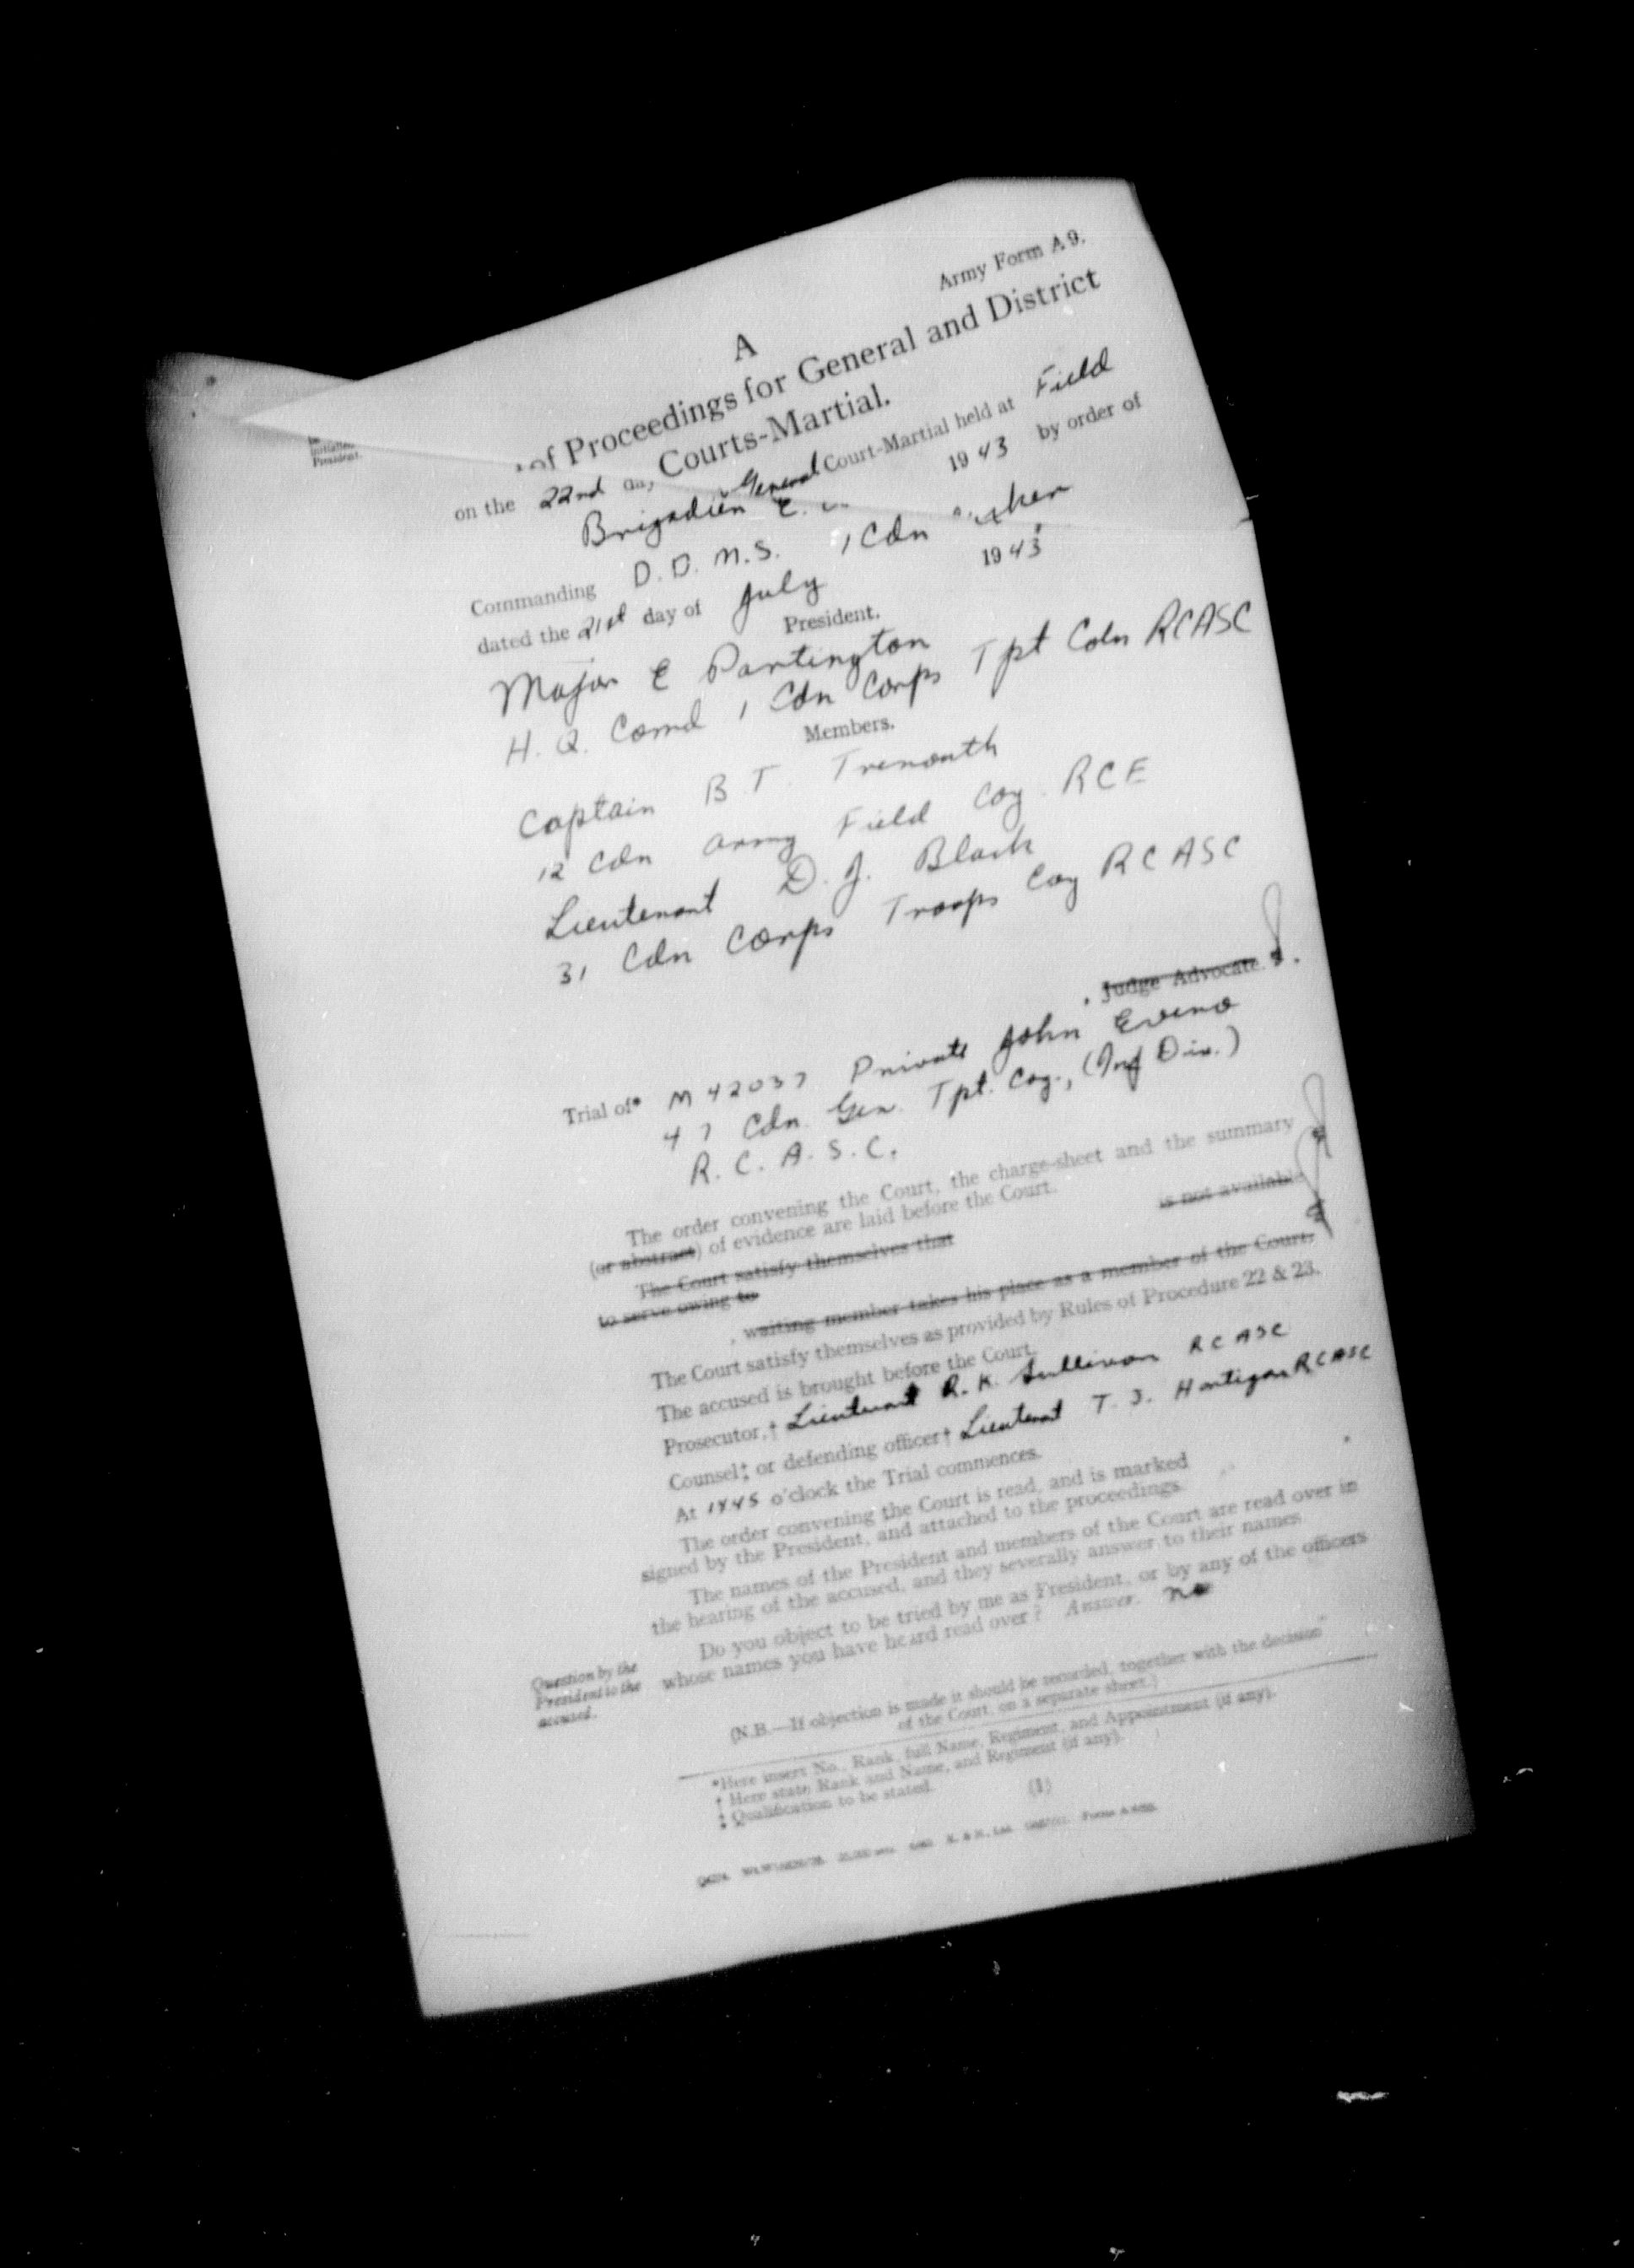 Army Form A 9.
A
of Proceedings for General and District
Courts-Martial.
General Court-Martial held at Field
on the 22nd 1943 by order of
Brigadier E.
Commanding D.D.M.S. 1 Cdn
dated the 21st day of July 1943
President.
Major E Partington
H.Q. Comd 1 Cdn Corps Tpt Coln RCASC
Members.
Captain B T. Tremouth
12 Cdn Army Field Coy. RCE
Lieutenant D. J. Black
31 Cdn Corps Troops Coy RCASC
Judge Advocate.
Trial of* M 42037 Private John
47 Cdn. Gen. Tpt. Coy., (Inf Div.)
R.C.A.S.C.
The order convening the Court, the charge-sheet and the summary
(or abstract) of evidence are laid before the Court.
The Court satisfy themselves that is not available
to serve owing to
, waiting member takes his place as a member of the Court.
The Court satisfy themselves as provided by Rules of Procedure 22 & 23.
The accused is brought before the Court.
Prosecutor,† Lieutenant R. K. Sullivan RCASC
Counsel‡ or defending officer† Lieutenant T. J. Hartigan RCASC
At 1445 o'clock the Trial commences.
The order convening the Court is read, and is marked
signed by the President, and attached to the proceedings.
The names of the President and members of the Court are read over in
the hearing of the accused, and they severally answer to their names.
Question by the
President to the
accused.
Do you object to be tried by me as President, or by any of the officers
whose names you have heard read over? Answer. no
(N.B.—If objection is made it should be recorded, together with the decision
of the Court, on a separate sheet.)
*Here insert No., Rank, full Name, Regiment, and Appointment (if any).
† Here state Rank and Name, and Regiment (if any).
‡ Qualification to be stated.
(1)